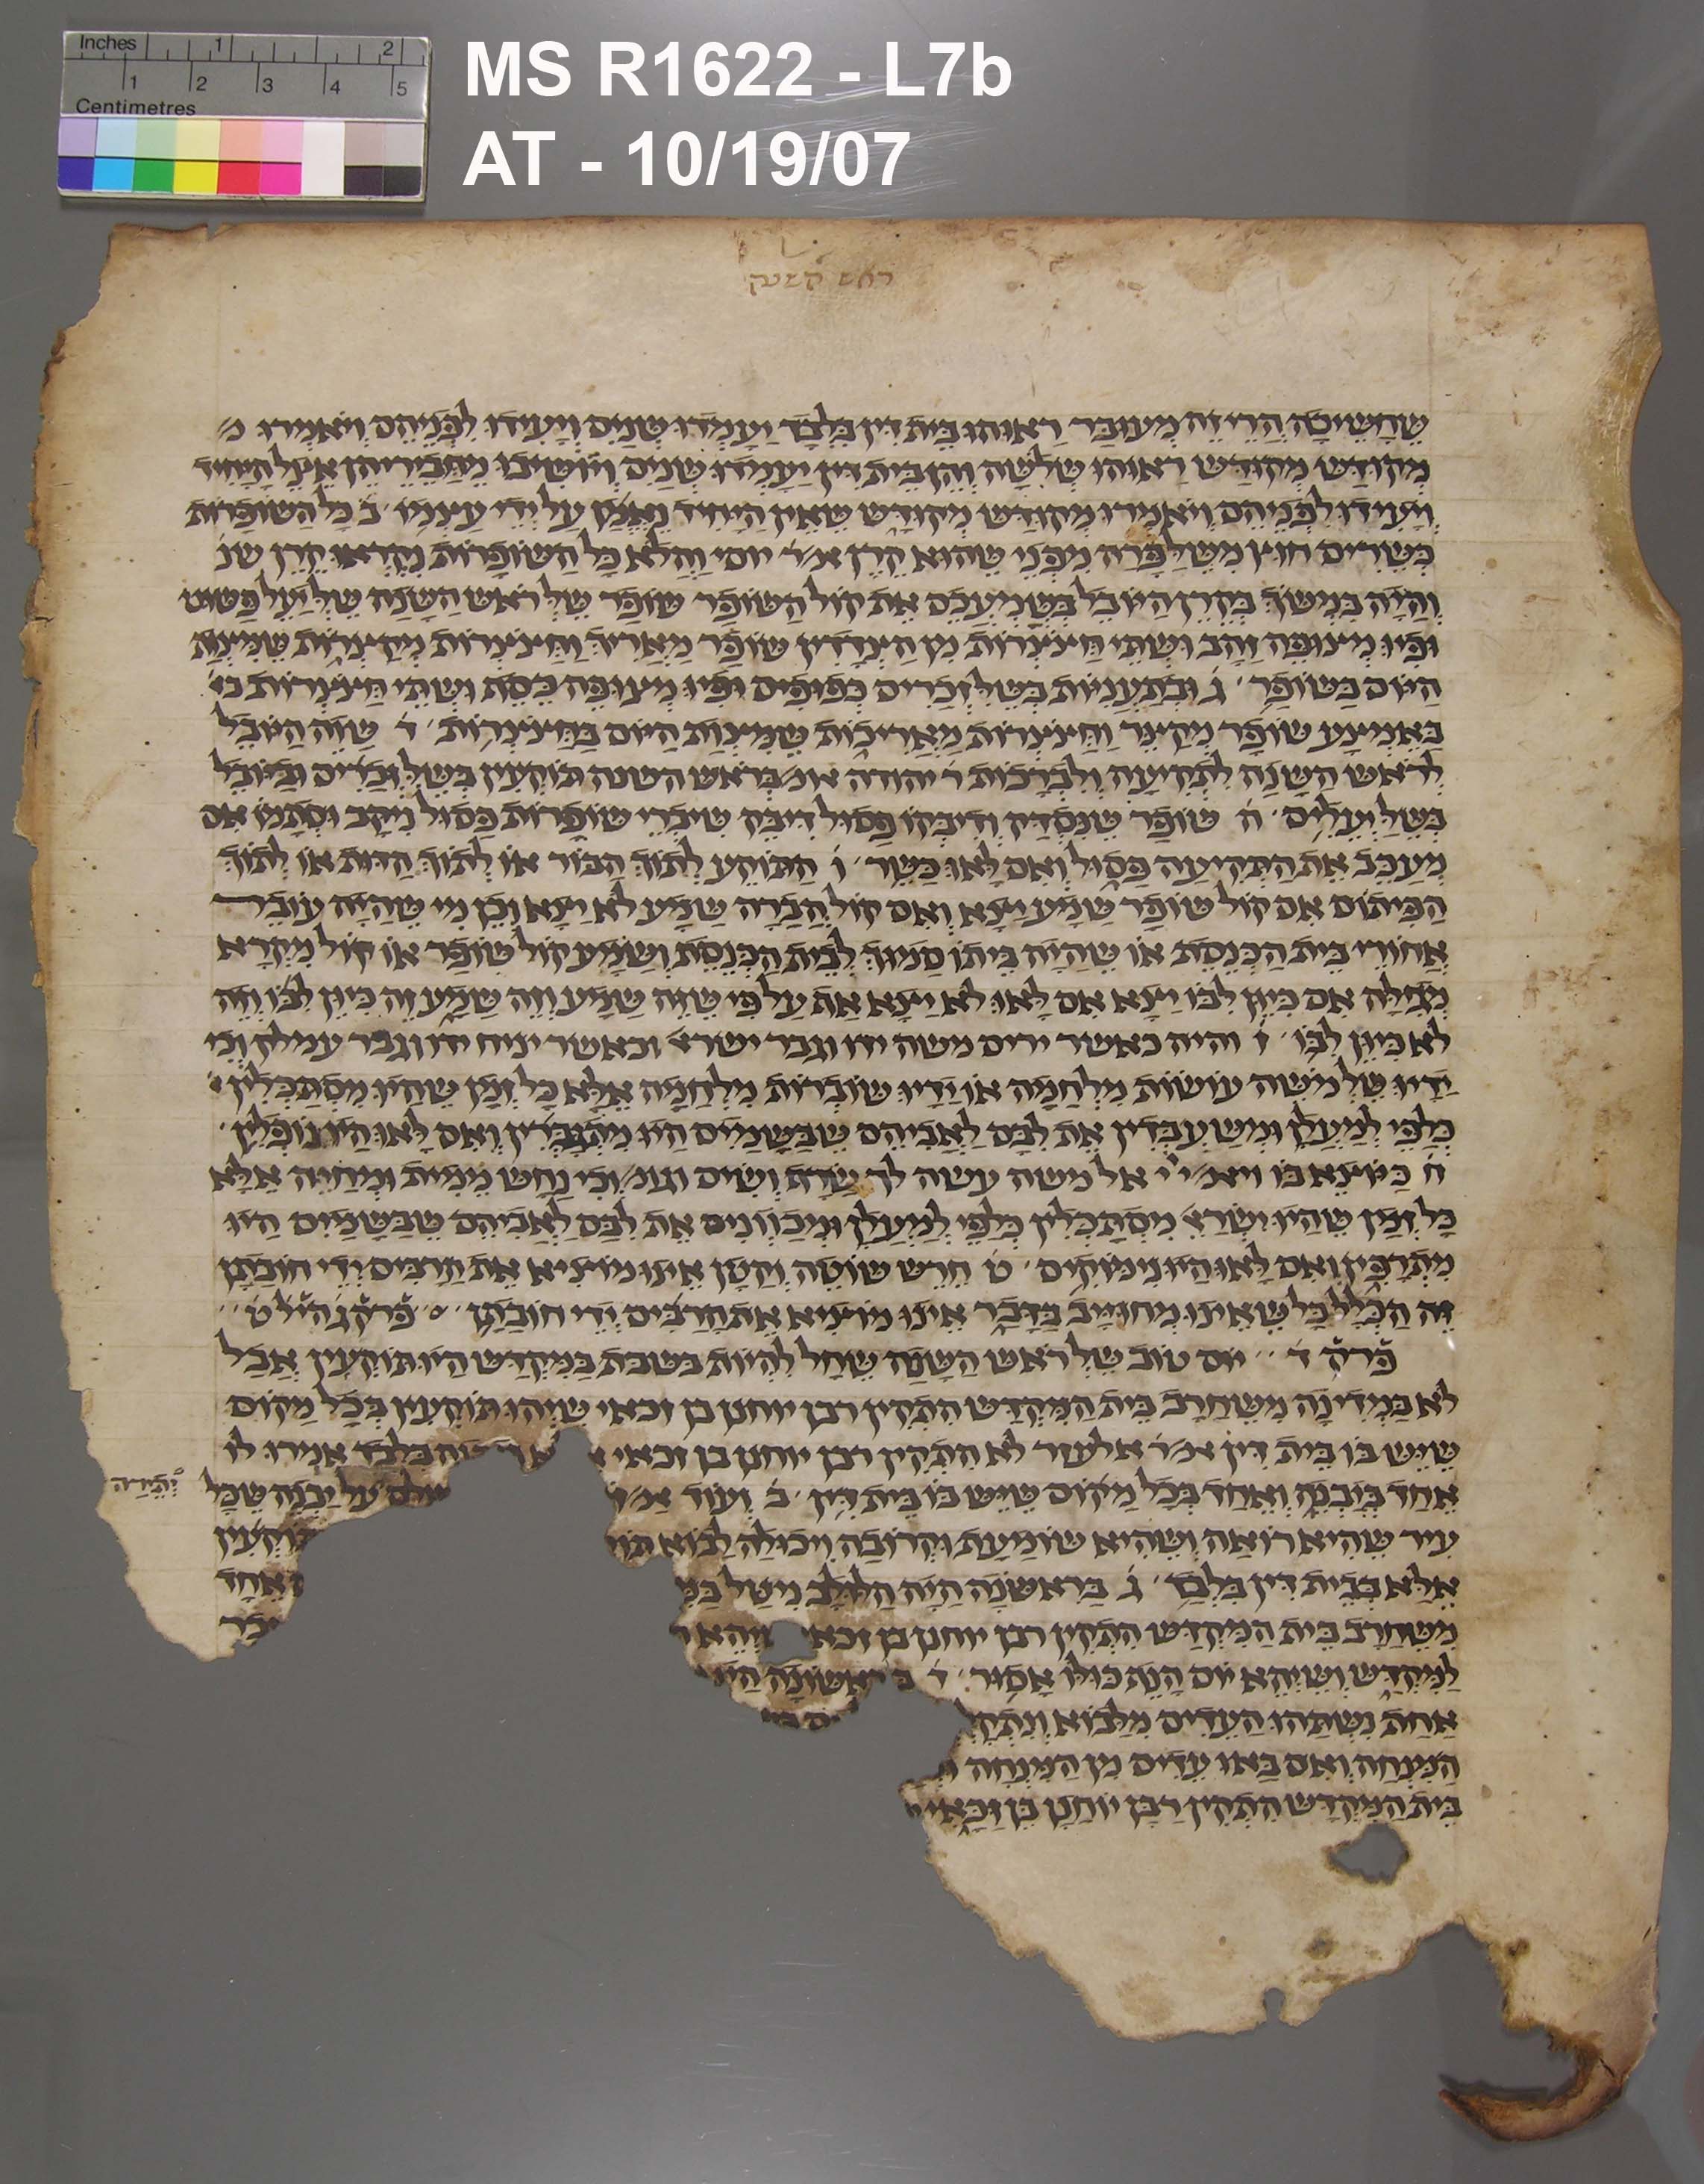 Inches 1 2
1 2 3 4 5
Centimetres
MS R1622 - L7b
AT - 10/19/07
ראש השנה
שֶׁחֲשֵׁיכָה הֲרֵי זֶה מְעוּבָּר רָאוּהוּ בֵּית דִּין בִּלְבָד יַעַמְדוּ שְׁנַיִם וְיָעִידוּ לִפְנֵיהֶם וְיֹאמְרוּ מ׳
מְקוּדָּשׁ מְקוּדָּשׁ רָאוּהוּ שְׁלֹשָׁה וְהֵן בֵּית דִּין יַעַמְדוּ שְׁנַיִם וְיוֹשִׁיבוּ מֵחֲבֵרֵיהֶן אֵצֶל הַיָּחִיד
וְיָעִידוּ לִפְנֵיהֶם וְיֹאמְרוּ מְקוּדָּשׁ מְקוּדָּשׁ שֶׁאֵין הַיָּחִיד נֶאֱמָן עַל יְדֵי עַצְמוֹ ׳ ב׳ כל הַשּׁוֹפָרוֹת
כְּשֵׁרִים חוּץ מִשֶּׁלַּפָּרָה מִפְּנֵי שֶׁהוּא קֶרֶן א׳ ר׳ יוסי וַהֲלֹא כָּל הַשּׁוֹפָרוֹת נִקְרְאוּ קֶרֶן שנ׳
וְהָיָה בִּמְשׁוֹךְ בְּקֶרֶן הַיּוֹבֵל בְּשָׁמְעֲכֶם אֶת קוֹל הַשּׁוֹפָר שׁוֹפָר שֶׁלְּרֹאשׁ הַשָּׁנָה שֶׁלְּיָעֵל פָּשׁוּט
וּפִיו מְצוּפֶּה זָהָב וּשְׁתֵּי חֲצוֹצְרוֹת מִן הַצְּדָדִין שׁוֹפָר מַאֲרִיךְ וַחֲצוֹצְרוֹת מְקַצְּרוֹת שֶׁמִּצְוַת
הַיּוֹם בַּשּׁוֹפָר ׳ ג׳ וּבְתַעֲנִיּוֹת בְּשֶׁלִּזְכָרִים כְּפוּפִים וּפִיו מְצוּפֶּה כֶּסֶף וּשְׁתֵּי חֲצוֹצְרוֹת
בָּאֶמְצַע שׁוֹפָר מְקַצֵּר וַחֲצוֹצְרוֹת מַאֲרִיכוֹת שֶׁמִּצְוַת הַיּוֹם בַּחֲצוֹצְרוֹת ׳ ד׳ שָׁוֶה הַיּוֹבֵל
לְרֹאשׁ הַשָּׁנָה לִתְקִיעָה וְלִבְרָכוֹת ר׳ יהודה אומ׳ בְּרֹאשׁ הַשָּׁנָה תּוֹקְעִין בְּשֶׁלִּזְכָרִים וּבַיּוֹבֵל
בְּשֶׁלַּיְּעֵלִים ׳ ה׳ שׁוֹפָר שֶׁנִּסְדַּק וְדִיבְּקוֹ פָּסוּל דִּיבֵּק שִׁיבְרֵי שׁוֹפָרוֹת פָּסוּל נִיקַב וּסְתָמוֹ אִם
מְעַכֵּב אֶת הַתְּקִיעָה פָּסוּל וְאִם לָאו כָּשֵׁר ׳ ו׳ הַתּוֹקֵעַ לְתוֹךְ הַבּוֹר אוֹ לְתוֹךְ הַדּוּת אוֹ לְתוֹךְ
הַפִּיתוֹס אִם קוֹל שׁוֹפָר שָׁמַע יָצָא וְאִם קוֹל הֲבָרָה שָׁמַע לֹא יָצָא וְכֵן מִי שֶׁהָיָה עוֹבֵר
אֲחוֹרֵי בֵּית הַכְּנֶסֶת אוֹ שֶׁהָיָה בֵּיתוֹ סָמוּךְ לְבֵית הַכְּנֶסֶת וְשָׁמַע קוֹל שׁוֹפָר אוֹ קוֹל מִקְרָא
מְגִילָּה אִם כִּיוֵּן לִבּוֹ יָצָא אִם לָאו לֹא יָצָא אַף עַל פִּי שֶׁזֶּה שָׁמַע וְזֶה שָׁמַע זֶה כִּיוֵּן לִבּוֹ וְזֶה
לֹא כִיוֵּן לִבּוֹ ׳ ז׳ והיה כאשר ירים משה ידו וגבר ישר׳ וכאשר יניח ידו וגבר עמלק וְכִי
יָדָיו שֶׁלְּמֹשֶׁה עוֹשׂוֹת מִלְחָמָה אוֹ יָדָיו שׁוֹבְרוֹת מִלְחָמָה אֶלָּא כָל זְמַן שֶׁהָיוּ מִסְתַּכְּלִין
כְּלַפֵּי לְמַעְלָן וּמְשַׁעְבְּדִין אֶת לִבָּם לַאֲבִיהֶם שֶׁבַּשָּׁמַיִם הָיוּ מִתְגַּבְּרִין וְאִם לָאו הָיוּ נוֹפְלִין ׳
ח׳ כַּיּוֹצֵא בוֹ ויאמ׳ ייי אל משה עשה לך שָׂרָף וְשִׂים וגומ׳ וְכִי נָחָשׁ מֵמִית וּמְחַיֶּה אֶלָּא
כָל זְמַן שֶׁהָיוּ יִשְׂרָ׳ מִסְתַּכְּלִין כְּלַפֵּי לְמַעְלָן וּמְכַוְּונִים אֶת לִבָּם לַאֲבִיהֶם שֶׁבַּשָּׁמַיִם הָיוּ
מִתְרַפִּין וְאִם לָאו הָיוּ נִימּוֹקִים ׳ ט׳ חֵרֵשׁ שׁוֹטֶה וְקָטָן אֵינוּ מוֹצִיא אֶת הָרַבִּים יְדֵי חוֹבָתָן
זֶה הַכְּלָל כָּל שֶׁאֵינוּ מְחוּיָּב בַּדָּבָר אֵינוּ מוֹצִיא אֶת הָרַבִּים יְדֵי חוֹבָתָן ׳ פרק׳ ג׳ הל׳ ט׳
פרק׳ ד׳ ׳ יוֹם טוֹב שֶׁלְּרֹאשׁ הַשָּׁנָה שֶׁחָל לִהְיוֹת בַּשַּׁבָּת בַּמִּקְדָּשׁ הָיוּ תּוֹקְעִין אֲבָל
לֹא בַמְּדִינָה מִשֶּׁחָרַב בֵּית הַמִּקְדָּשׁ הִתְקִין רבן יוחנן בן זכאי שֶׁיְּהוּ תוֹקְעִין בְּכָל מָקוֹם
שֶׁיֵּשׁ בּוֹ בֵּית דִּין א׳ ר׳ אלעזר לא הִתְקִין רבן יוחנן בן זכאי בִּלְבָד אָמְרוּ לוֹ
אֶחָד בְּיַבְנֶה וְאֶחָד בְּכָל מָקוֹם שֶׁיֵּשׁ בּוֹ בֵּית דִּין ׳ ב׳ וְעוֹד עַל יַבְנֶה שֶׁכָּל
יְתֵירָה
עִיר שֶׁהִיא רוֹאָה וְשֶׁהִיא שׁוֹמַעַת וּקְרוֹבָה וִיכוֹלָה לָבוֹא תוֹקְעִין
אֶלָּא בְּבֵית דִּין בִּלְבָד ׳ ג׳ בָּרִאשׁוֹנָה הָיָה הַלּוּלָב נִיטָּל אֶחָד
מִשֶּׁחָרַב בֵּית הַמִּקְדָּשׁ הִתְקִין רבן יוחנן בן זכאי
לַמִּקְדָּשׁ וְשֶׁיְּהֵא יוֹם הָנֵף כּוּלּוֹ אָסוּר ׳ ד׳ בָּרִאשׁוֹנָה
אַחַת נִשְׁתַּהוּ הָעֵדִים מִלָּבוֹא
הַמִּנְחָה וְאִם בָּאוּ עֵדִים מִן הַמִּנְחָה
בֵּית הַמִּקְדָּשׁ הִתְקִין רַבָּן יוֹחָנָן בֶּן זַכַּאי